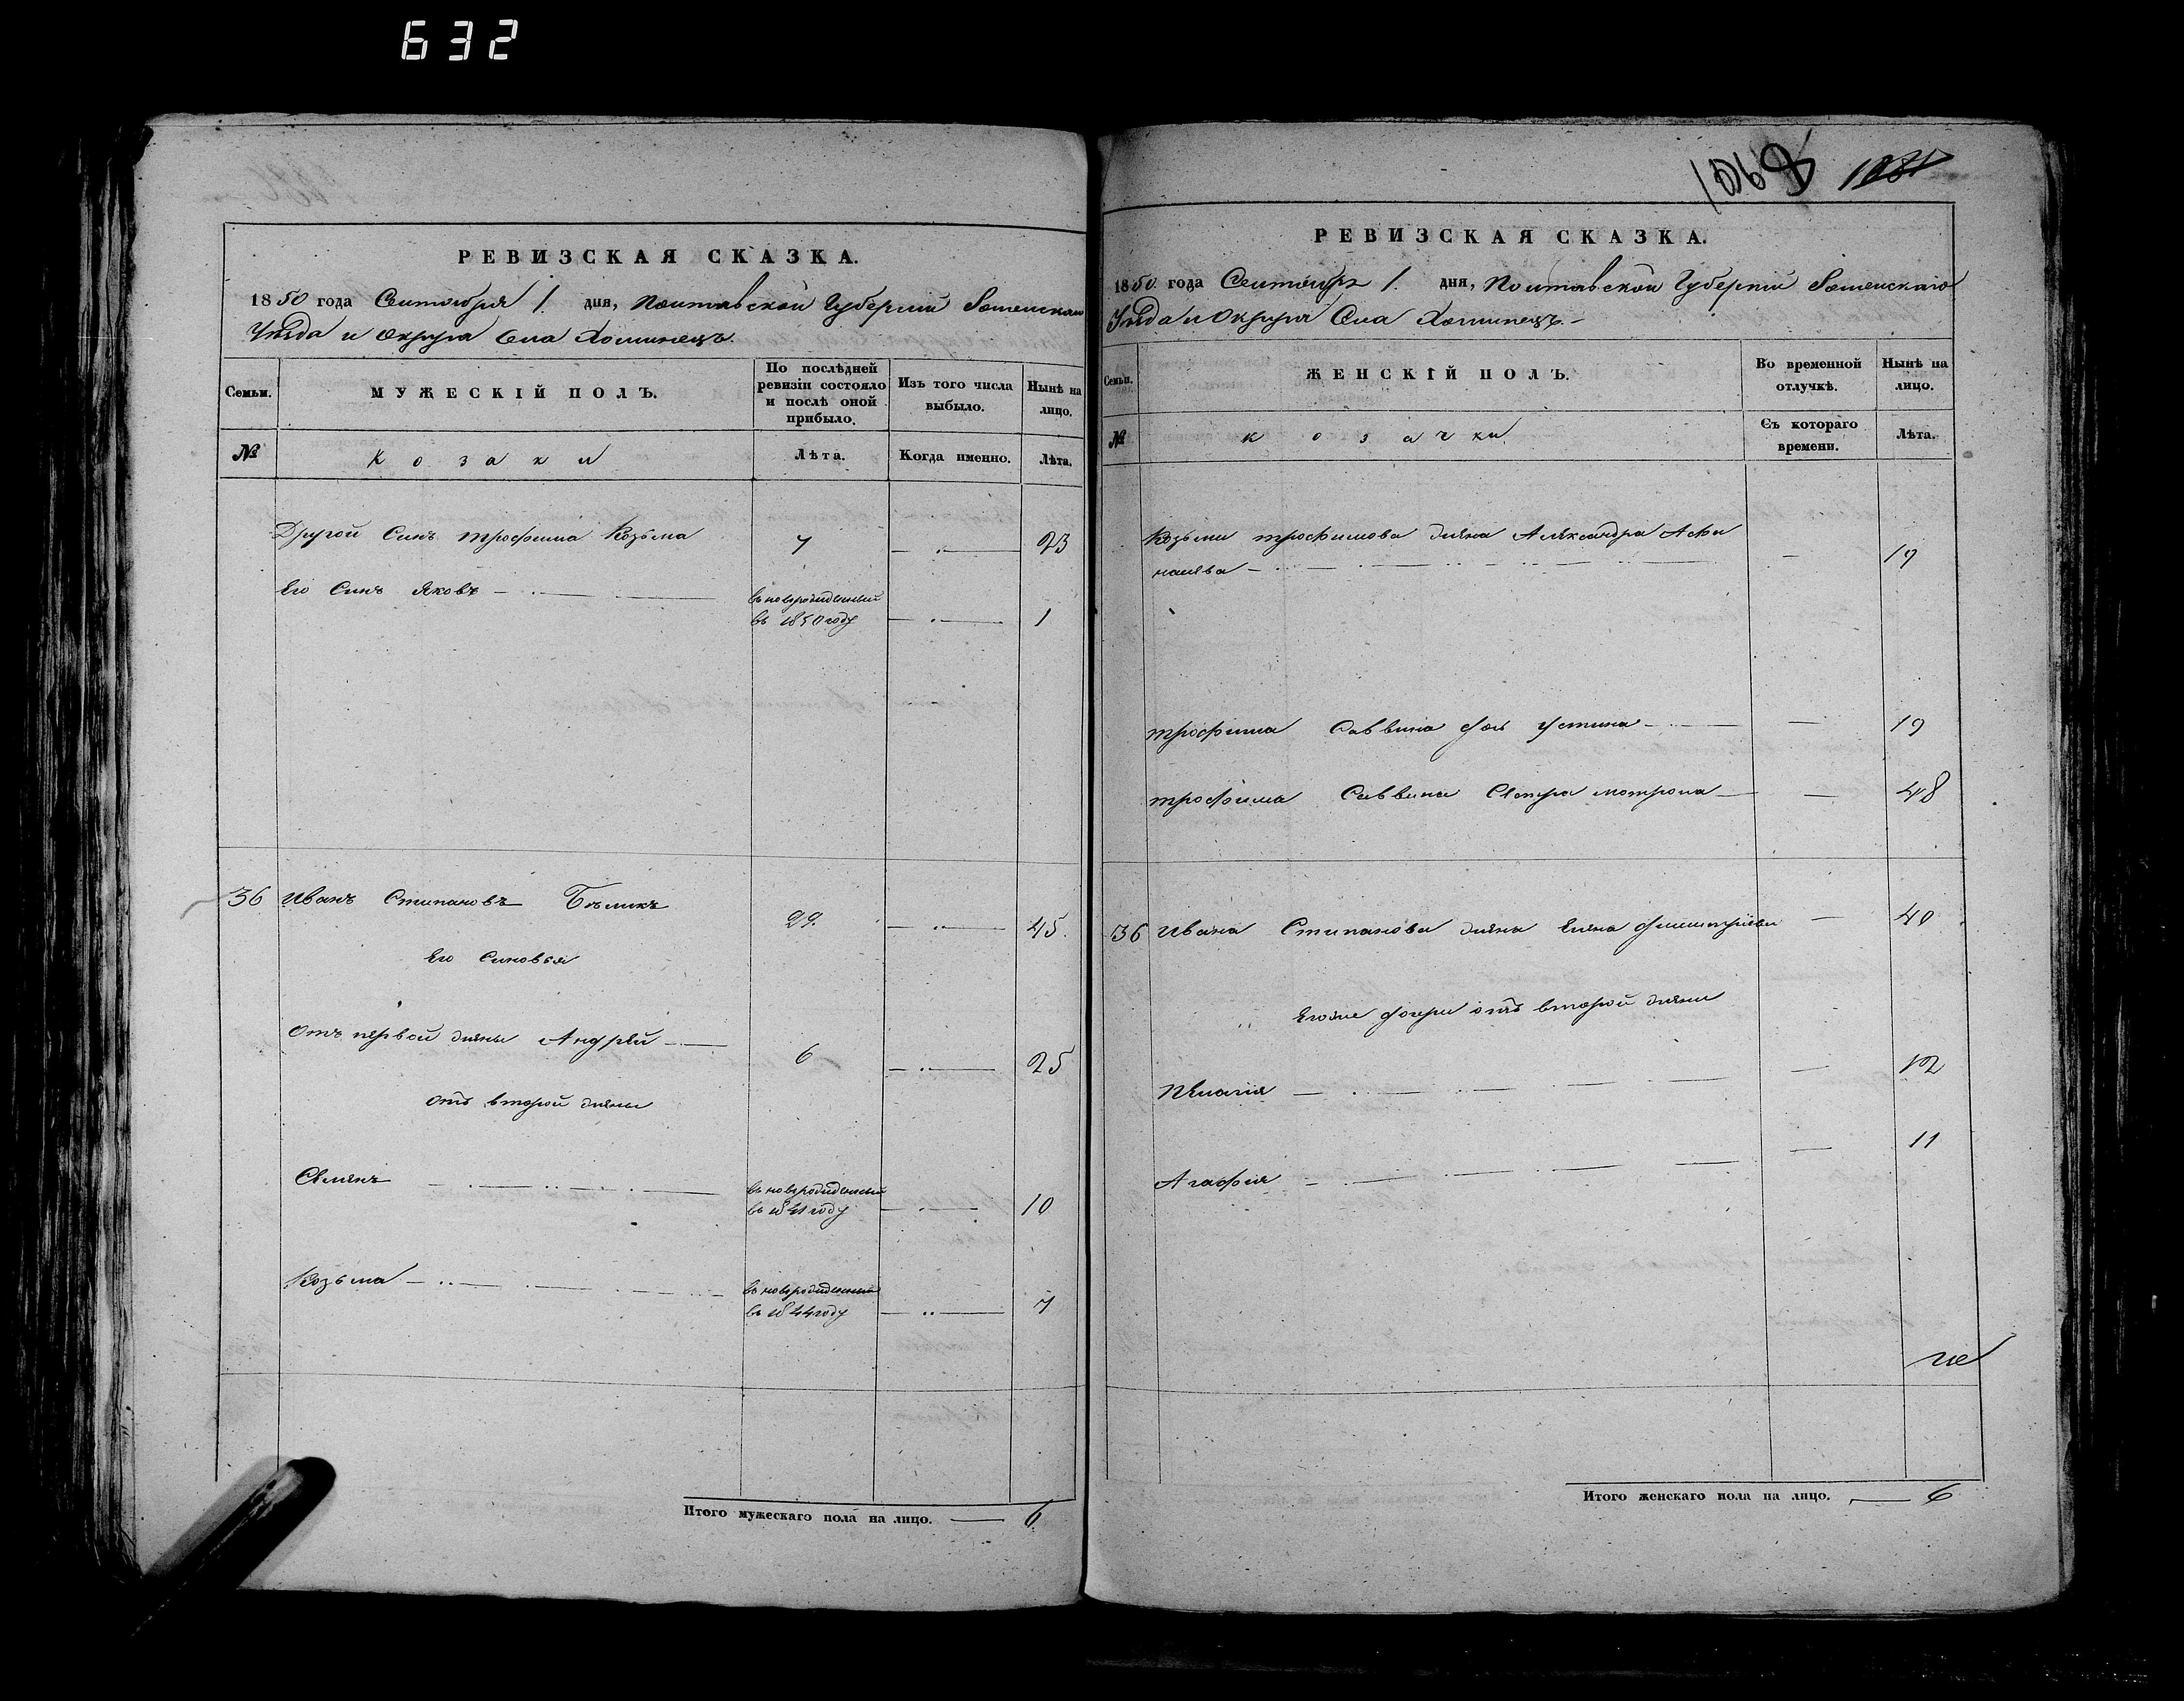 632
1069 1081
РЕВИЗСКАЯ СКАЗКА.
1850 года Сентября 1. дня, Полтавской Губерніи Роменскаго
Уѣзда и Округа Села Хоминецъ.
Семьи. МУЖЕСКІЙ ПОЛЪ. По послѣдней ревизіи состояло и послѣ оной прибыло. Изъ того числа выбыло. Нынѣ на лицо.
№ Козаки Лѣта. Когда именно. Лѣта.
Другой Синъ трофима Козьма 7 23
Его Синъ Яковъ вноворожденный
въ 1850 году 1
36 Иванъ Стипановъ Бѣликъ 29. 45.
Его Синовья
Отъ первой жены Андрей 6 25
отъ второй жены
Семенъ вноворожденный
въ 1841 году 10
Козьма вноворожденный
въ 1844 году 7
Итого мужескаго пола на лицо. 6
РЕВИЗСКАЯ СКАЗКА.
1850 года Сентября 1. дня, Полтавской Губерніи Роменскаго
Уѣзда и Округа Села Хоминецъ.
Семьи. ЖЕНСКІЙ ПОЛЪ. Во временной отлучкѣ. Нынѣ на лицо.
№ козачки Съ котораго времени. Лѣта.
Козьми трофимова жена Александра Афа
насьева 19
трофима Саввина дочь Устина 19
трофима Саввина Сестра мотрона 48
36 Ивана Стипанова жена Елена Дмитріева 40
Егоже дочери отъ второй жены
Пелагія 12
Агафія 11
Итого женскаго пола на лицо. 6